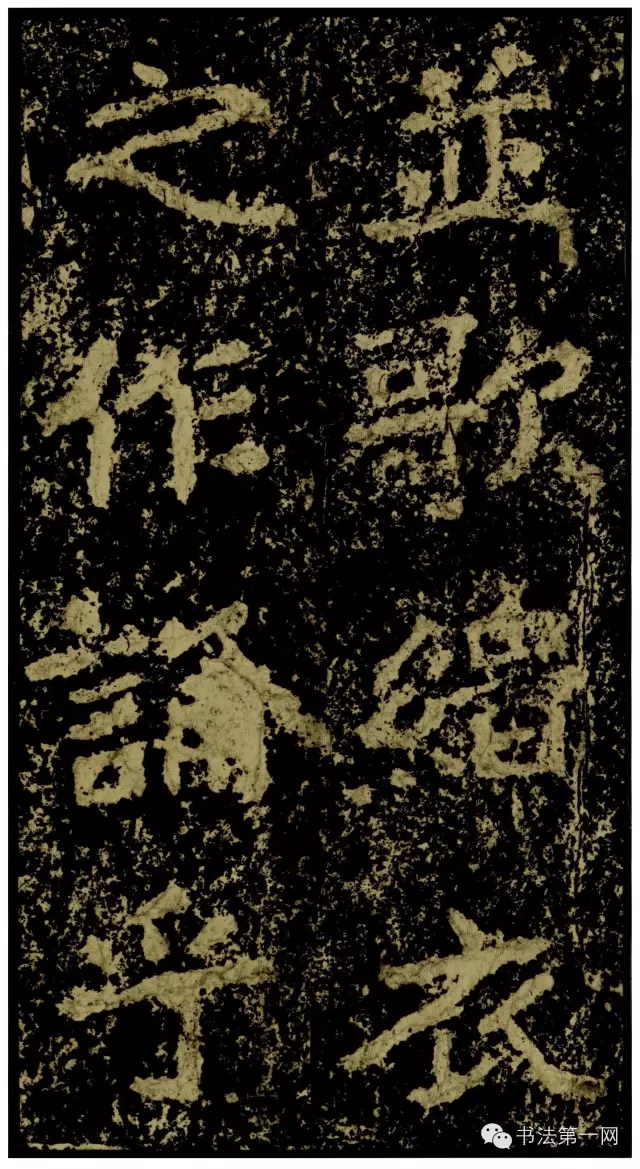 並歌緇衣
之作論乎
书法第一网